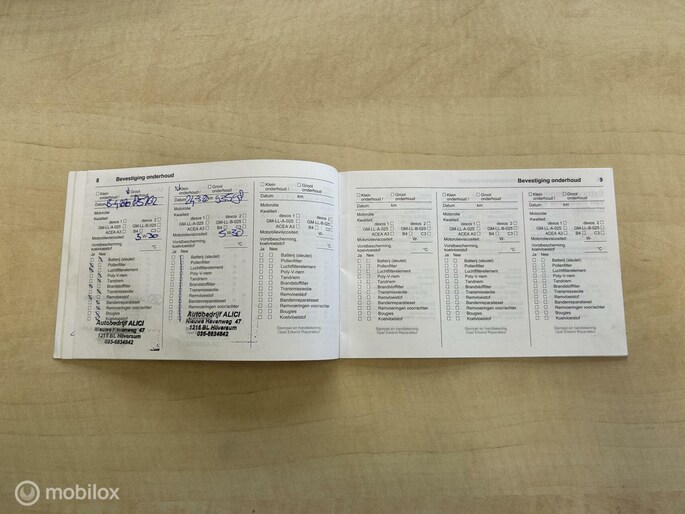 8 Bevestiging onderhoud
Klein onderhoud / Groot onderhoud
Datum km
Motorolie
Kwaliteit
dexos 1 dexos 2
GM-LL-A-025 GM-LL-B-025
ACEA A3 B4 C3
Motorolieviscositeit 5-30
Vorstbescherming
koelvloeistof °C
Ja Nee
Batterij (sleutel)
Pollenfilter
Luchtfilterelement
Poly V-riem
Tandriem
Brandstoffilter
Transmissieolie
Remvloeistof
Bandenreparatieset
Remvoeringen voor/achter
Bougies
Koelvloeistof
Autobedrijf ALICI
Nieuwe Havenweg 47
1216 BL Hilversum
035-6834842
Klein onderhoud / Groot onderhoud
Datum km
Motorolie
Kwaliteit
dexos 1 dexos 2
GM-LL-A-025 GM-LL-B-025
ACEA A3 B4 C3
Motorolieviscositeit 5-30
Vorstbescherming
koelvloeistof °C
Ja Nee
Batterij (sleutel)
Pollenfilter
Luchtfilterelement
Poly V-riem
Tandriem
Brandstoffilter
Transmissieolie
Remvloeistof
Bandenreparatieset
Remvoeringen voor/achter
Bougies
Koelvloeistof
Autobedrijf ALICI
Nieuwe Havenweg 47
1216 BL Hilversum
035-6834842
Klein onderhoud / Groot onderhoud
Datum km
Motorolie
Kwaliteit
dexos 1 dexos 2
GM-LL-A-025 GM-LL-B-025
ACEA A3 B4 C3
Motorolieviscositeit W-
Vorstbescherming
koelvloeistof °C
Ja Nee
Batterij (sleutel)
Pollenfilter
Luchtfilterelement
Poly V-riem
Tandriem
Brandstoffilter
Transmissieolie
Remvloeistof
Bandenreparatieset
Remvoeringen voor/achter
Bougies
Koelvloeistof
Stempel en handtekening
Opel Erkend Reparateur
Bevestiging onderhoud 9
Klein onderhoud / Groot onderhoud
Datum km
Motorolie
Kwaliteit
dexos 1 dexos 2
GM-LL-A-025 GM-LL-B-025
ACEA A3 B4 C3
Motorolieviscositeit W-
Vorstbescherming
koelvloeistof °C
Ja Nee
Batterij (sleutel)
Pollenfilter
Luchtfilterelement
Poly V-riem
Tandriem
Brandstoffilter
Transmissieolie
Remvloeistof
Bandenreparatieset
Remvoeringen voor/achter
Bougies
Koelvloeistof
Stempel en handtekening
Opel Erkend Reparateur
Klein onderhoud / Groot onderhoud
Datum km
Motorolie
Kwaliteit
dexos 1 dexos 2
GM-LL-A-025 GM-LL-B-025
ACEA A3 B4 C3
Motorolieviscositeit W-
Vorstbescherming
koelvloeistof °C
Ja Nee
Batterij (sleutel)
Pollenfilter
Luchtfilterelement
Poly V-riem
Tandriem
Brandstoffilter
Transmissieolie
Remvloeistof
Bandenreparatieset
Remvoeringen voor/achter
Bougies
Koelvloeistof
Stempel en handtekening
Opel Erkend Reparateur
Klein onderhoud / Groot onderhoud
Datum km
Motorolie
Kwaliteit
dexos 1 dexos 2
GM-LL-A-025 GM-LL-B-025
ACEA A3 B4 C3
Motorolieviscositeit W-
Vorstbescherming
koelvloeistof °C
Ja Nee
Batterij (sleutel)
Pollenfilter
Luchtfilterelement
Poly V-riem
Tandriem
Brandstoffilter
Transmissieolie
Remvloeistof
Bandenreparatieset
Remvoeringen voor/achter
Bougies
Koelvloeistof
Stempel en handtekening
Opel Erkend Reparateur
mobilox